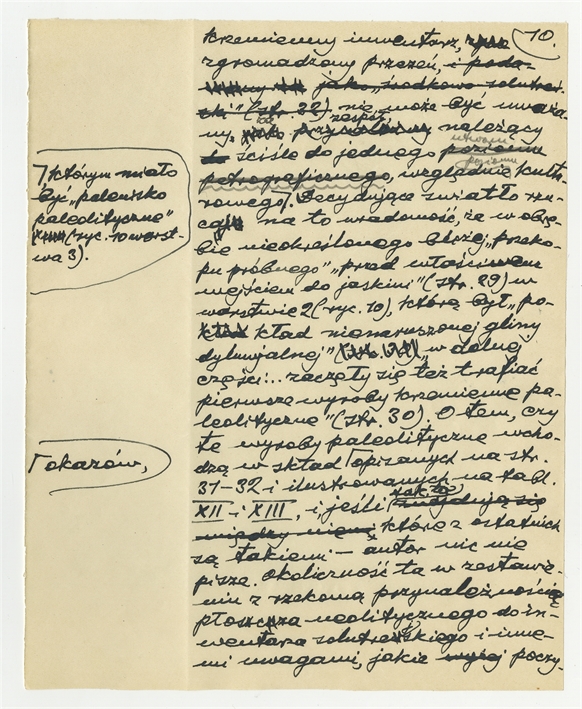 10.
krzemienny inwentarz,
zgromadzony przezeń, i poda-
jako „środkowo solutrej-
ski" (str. 32) nie może być uważa-
ny, za zespół należący
ściśle do jednego poziomu utworu
petrograficznego, względnie poziomu kultu-
rowego. Decydujące światło rzu-
ca na to wiadomość, że w obrę-
bie nieokreślonego bliżej „przeko-
pu próbnego" „przed właściwem
wejściem do jaskini" (str. 29) w
warstwie 2 (ryc. 10), którą był, „po-
kład nienaruszonej gliny
dyluwjalnej" „w dolnej
części... zaczęły się też trafiać
pierwsze wyroby krzemienne pa-
leolityczne" (str. 30). O tem, czy
te wyroby paleolityczne wcho-
dzą w skład ⌈opisanych na str.
31-32 i ilustrowanych na tabl.
XII i XIII, i, jeśli tak, to znajdują się
między niemi, które z ostatnich
są takiemi – autor nic nie
pisze. Okoliczność ta w zestawie-
niu z rzekomą przynależnością
płoszcza neolitycznego do in-
wentarza solutrejskiego i inne-
mi uwagami, jakie wyżej poczy-
⌉, którym miało
być „palenisko
paleolityczne"
(ryc. 10 warst-
wa 3).
⌈okazów,